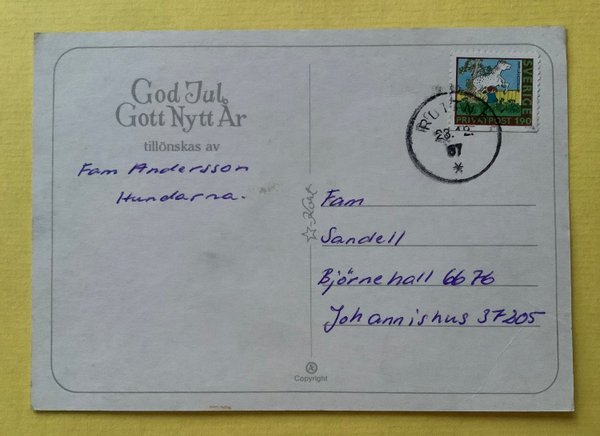 God Jul
Gott Nytt År
tillönskas av
Fam Andersson
Hundarna.
SVERIGE
PRIVATPOST 190
23.12
87
*
Fam
Sandell
Björnehall 6676
Johannishus 37205
Copyright